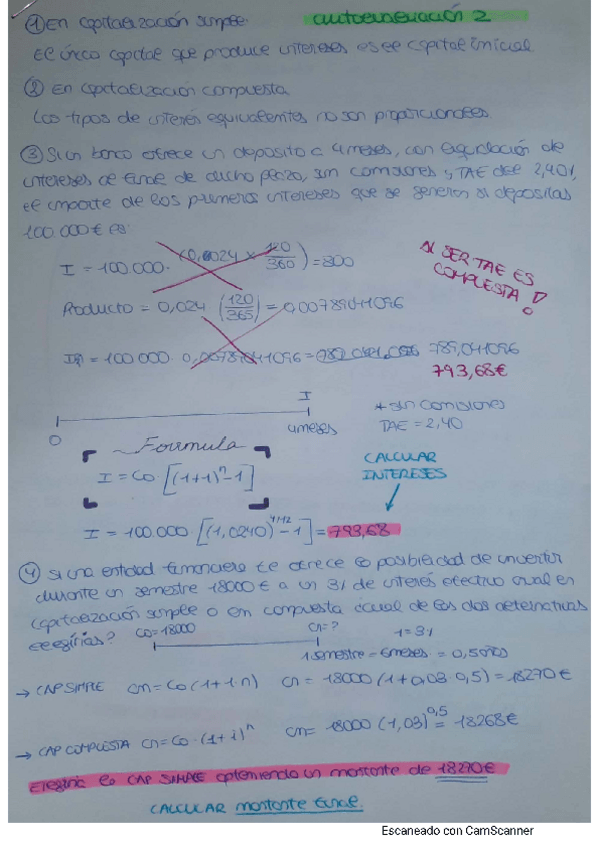 ① En capitalización simple. autoevaluación 2
El único capital que produce intereses es el capital inicial
② En capitalización compuesta
Los tipos de interés equivalentes no son proporcionales
③ Si un banco ofrece un deposito a 4 meses, con liquidación de
intereses al final de dicho plazo, sin comisiones y TAE del 2,40%,
el importe de los primeros intereses que se generan si depositas
100 000€ es:
I = 100.000 · (0,0024 × 120/360) = 800
AL SER TAE ES
COMPUESTA!
Producto = 0,024 (120/365) = 0,00789041096
= 100 000 · 0,00789041096 = 789,041096
793,68€
I
0 4 meses
* sin comisiones
TAE = 2,40
Formula
I = Co [(1+i)ⁿ-1]
CALCULAR
INTERESES
I = 100.000 [(1,0240)^4/12 - 1] = 793,68
④ Si una entidad financiera te ofrece la posibilidad de invertir
durante un semestre 18000€ a un 3% de interés efectivo anual en
capitalización simple o en compuesta ¿cual de las dos alternativas
elegirías?
Co = 18000 Cn = ? i = 3%
1 semestre = 6 meses = 0,5 años
→ CAP SIMPLE Cn = Co (1+i·n) Cn = 18000 (1+0,03·0,5) = 18270€
→ CAP COMPUESTA Cn = Co · (1+i)ⁿ Cn = 18000 (1,03)^0,5 = 18268€
Elegiría la CAP SIMPLE obteniendo un montante de 18270€
CALCULAR montante final.
Escaneado con CamScanner